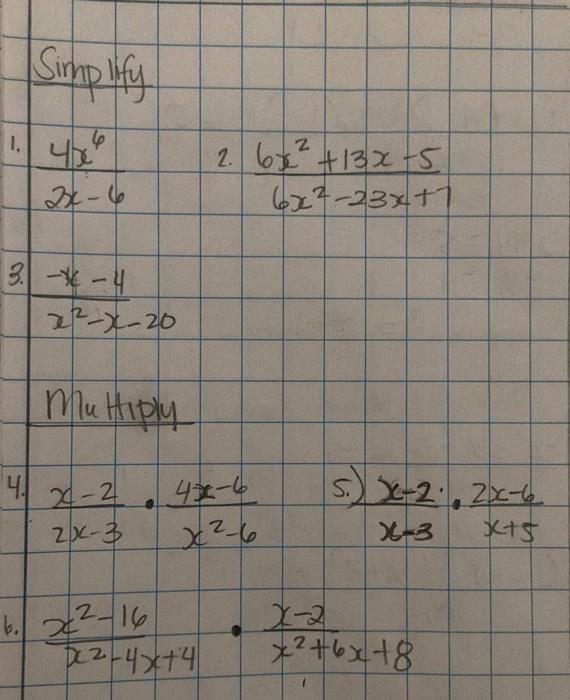 Simplify
1. 4x⁶/2x-6 2. 6x²+13x-5/6x²-23x+7
3. -x-4/x²-x-20
Multiply
4. x-2/2x-3 • 4x-6/x²-6 5.) x-2/x-3 • 2x-6/x+5
6. x²-16/x²-4x+4 • x-2/x²+6x+8